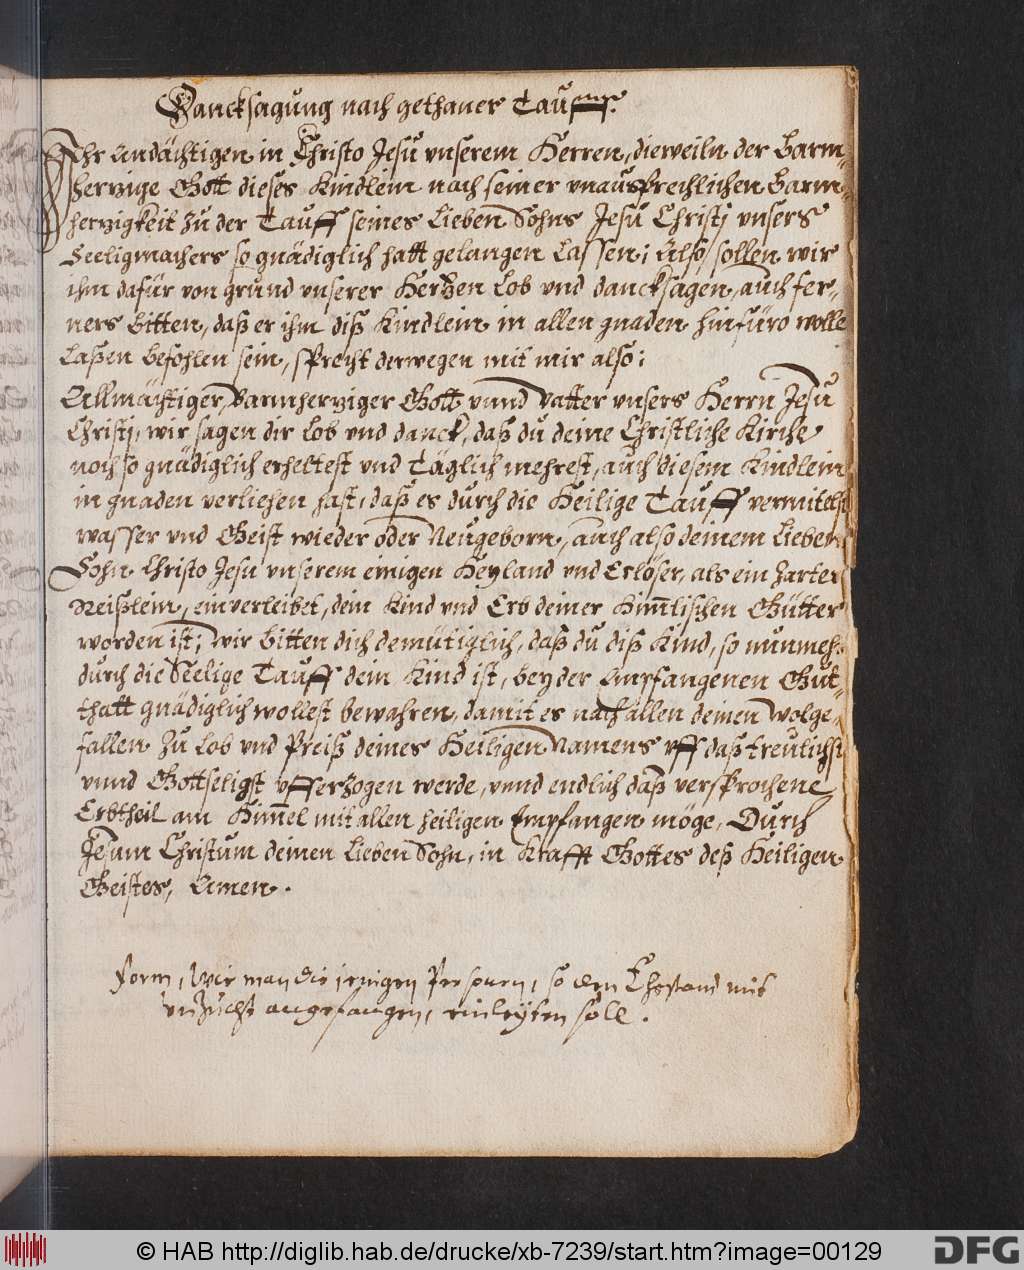 Dancksagung nach gethaner Tauff.
Ihr Andächtigen in Christo Jesu vnserem Herren, dieweiln der Barm-
hertzige Gott dieses Kindlein nach seiner vnaussprechlichen Barm-
hertzigkeit zu der Tauff seines Lieben Sohns Jesu Christj vnsers
Seeligmachers so gnädiglich hatt gelangen Lassen; Also sollen wir
ihm dafür von grund vnserer Hertzen Lob vnd dancksagen, auch fer-
ners bitten, daß er ihm diß Kindlein in allen gnaden hinfüro wolle
Laßen befohlen sein, sprecht derwegen mit mir also:
Allmächtiger, Barmhertziger Gott vnnd Vatter vnsers Herrn Jesu
Christj, wir sagen dir Lob vnd danck, daß du deine Christliche Kirche
noch so gnädiglich erheltest vnd Täglich mehrest, auch diesem Kindlein
in gnaden verliehen hast, daß es durch die Heilige Tauff vermittelst
wasser vnd Geist wieder oder Neugeborn, auch also deinem Lieben
Sohn Christo Jesu vnserem einigen Heyland vnd Erlöser, als ein zartes
Reißlein, einverleibet, dein Kind vnd Erb deiner Himlischen Gütter
worden ist; wir bitten dich demütiglich, daß du diß Kind, so nunmehr
durch die Seelige Tauff dein Kind ist, bey der Empfangenen Gut-
thatt gnädiglich wollest bewahren, damit es nach allen deinem wolge-
fallen zu Lob vnd Preiß deines Heiligen Namens vff daß treulichst
vnnd Gottseligst vfferzogen werde, vnnd endlich daß versprochene
Erbtheil am Himel mit allen heiligen Empfangen möge, Durch
Jesum Christum deinen Lieben Sohn, in Krafft Gottes deß Heiligen
Geistes, Amen.
Form, Wie man die jenigen Personen, so den Ehestand mit
vnzucht angefangen, einleyten soll.
© HAB http://diglib.hab.de/drucke/xb-7239/start.htm?image=00129
DFG